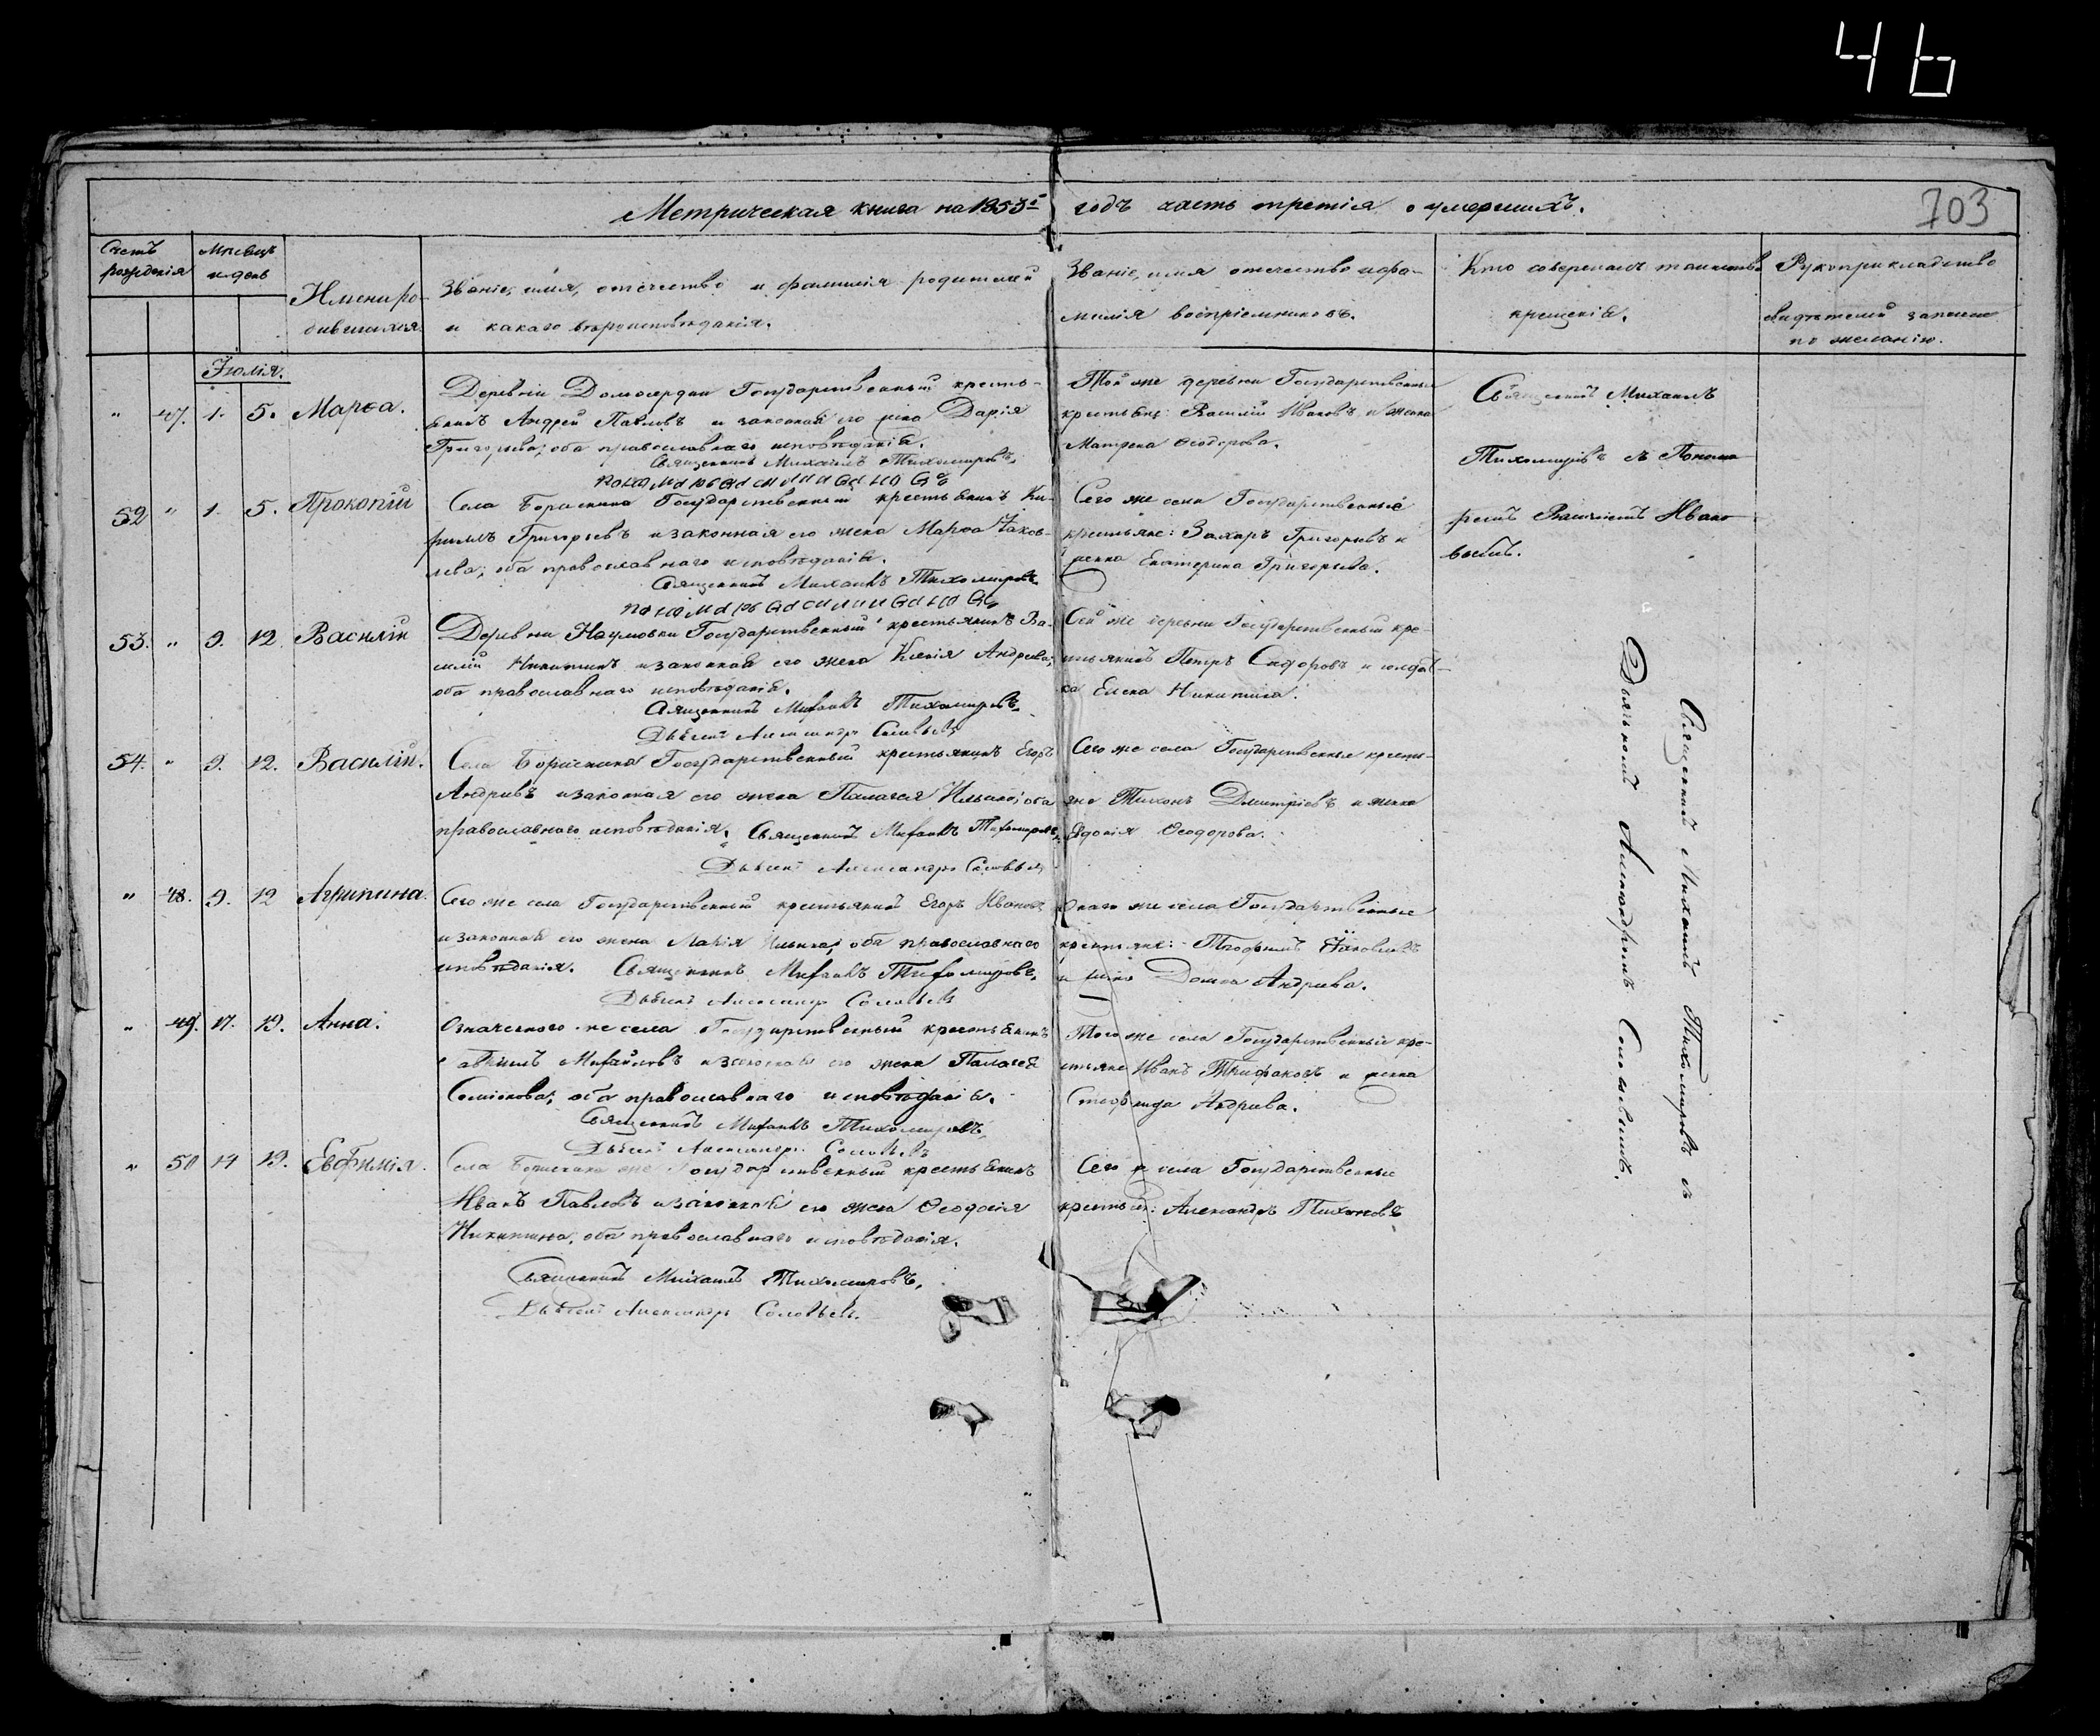 46
703
Метрическая книга на 1853й годъ часть третія о умершихъ.
Счетъ рожденія
Мѣсяцъ и день
Имена ро-
дившихся
Званіе, имя, отечество и фамилія родителей
и какаго вѣроисповѣданія.
Званіе, имя отечество и фа-
милія воспріемниковъ.
Кто совершалъ таинство
крещенія.
Рукоприкладство
свидѣтелей записи
по желанію.
Іюлія.
" 47. 1. 5. Марѳа.
Деревни Домосердки Государственный кресть-
янинъ Андрей Павловъ и законная его жена Дарія
Григорьева; оба православнаго исповѣданія.
Священникъ Михаилъ Тихомировъ.
Той же деревни Государственные
крестьяне: Василій Ивановъ и жена
Матрена Ѳеодорова.
Священникъ Михаилъ
Тихомировъ съ Понома-
ремъ Василіемъ Ивано-
вымъ.
52 " 1. 5. Прокопій
Села Борискина Государственный крестьянинъ Ки-
риллъ Григорьевъ и законная его жена Марѳа Іаков-
лева; оба православнаго исповѣданія.
Священникъ Михаилъ Тихомировъ
Сего же села Государственные
крестьяне: Захаръ Григорьевъ и
жена Екатерина Григорьева.
53. " 9. 12. Василій
Деревни Наумовки Государственный крестьянинъ Ва-
силій Никитинъ и законная его жена Ксенія Андреева;
оба православнаго исповѣданія.
Священникъ Михаилъ Тихомировъ.
Дьяконъ Александръ Соловьевъ
Сей же деревни Государственный кре-
стьянинъ Петръ Сидоровъ и солдат-
ка Елена Никитина.
54. " 9. 12. Василій.
Села Борискина Государственный крестьянинъ Егоръ
Андреевъ и законная его жена Палагея Ильина; оба
православнаго исповѣданія. Священникъ Михаилъ Тихомировъ.
Дьяконъ Александръ Соловьевъ
Сего же села Государственные кресть-
яне Тихонъ Дмитріевъ и жена
Ѳеодорова.
" 48. 9. 12 Агрипина.
Сего же села Государственный крестьянинъ Егоръ Ивановъ
и законная его жена Марія Ильина; оба православнаго
исповѣданія. Священникъ Михаилъ Тихомировъ.
Дьяконъ Александръ Соловьевъ
Онаго же села Государственные
крестьяне: Тимофей Іаковлевъ
и жена Домна Андреева.
" 49. 17. 19. Анна.
Означеннаго же села Государственный крестьянинъ
Михайловъ и законная его жена Палагея
Семіонова; оба православнаго исповѣданія.
Священникъ Михаилъ Тихомировъ.
Дьяконъ Александръ Соловьевъ
Того же села Государственные кре-
стьяне Иванъ Трифоновъ и жена
Стефанида Андреева.
" 50 19. Евѳимія.
Села Борискина же Государственный крестьянинъ
Иванъ Павловъ и законная его жена Ѳеодосія
Никитина; оба православнаго исповѣданія.
Священникъ Михаилъ Тихомировъ.
Дьяконъ Александръ Соловьевъ.
Сего же села Государственные
крестьяне: Александръ Тихоновъ
Священникъ Михаилъ Тихомировъ съ
Дьякономъ Александромъ Соловьевымъ.